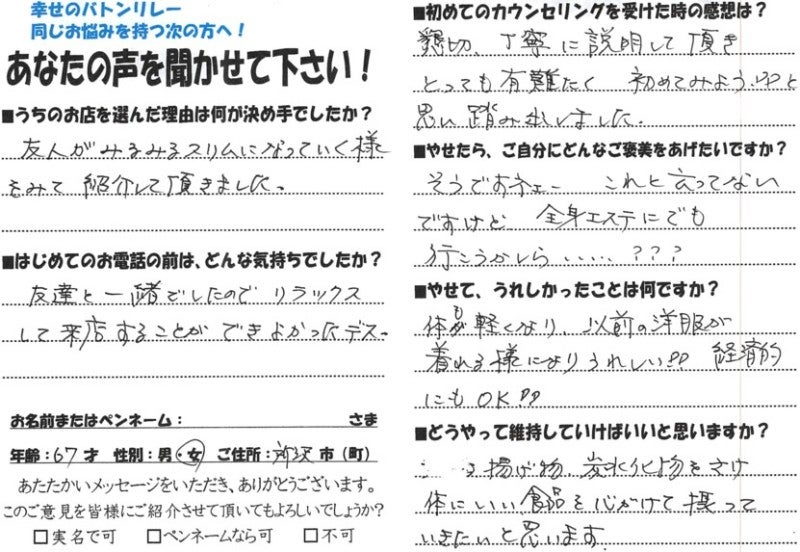 幸せのバトンリレー
同じお悩みを持つ次の方へ！
あなたの声を聞かせて下さい！
■うちのお店を選んだ理由は何が決め手でしたか？
友人がみるみるスリムになっていく様
をみて 紹介して頂きました。
■はじめてのお電話の前は、どんな気持ちでしたか？
友達と一緒でしたので リラックス
して来店することが できよかったデス。
お名前またはペンネーム： さま
年齢：67才 性別：男・女 ご住所：所沢市（町）
あたたかいメッセージをいただき、ありがとうございます。
このご意見を皆様にご紹介させて頂いてもよろしいでしょうか？
□実名で可 □ペンネームなら可 □不可
■初めてのカウンセリングを受けた時の感想は？
懇切、丁寧に説明して頂き
とっても有難たく 初めてみよう!!と
思い踏み出しました。
■やせたら、ご自分にどんなご褒美をあげたいですか？
そうですネェー これと云ってない
ですけど 全身エステにでも
行こうかしら ・・・・・ ？？？
■やせて、うれしかったことは何ですか？
体も軽くなり、以前の洋服が
着れる様になりうれしい!! 経済的
にもOK!!
■どうやって維持していけばいいと思いますか？
揚げ物、炭水化物をさけ
体にいい食品を心がけて摂って
いきたいと思います